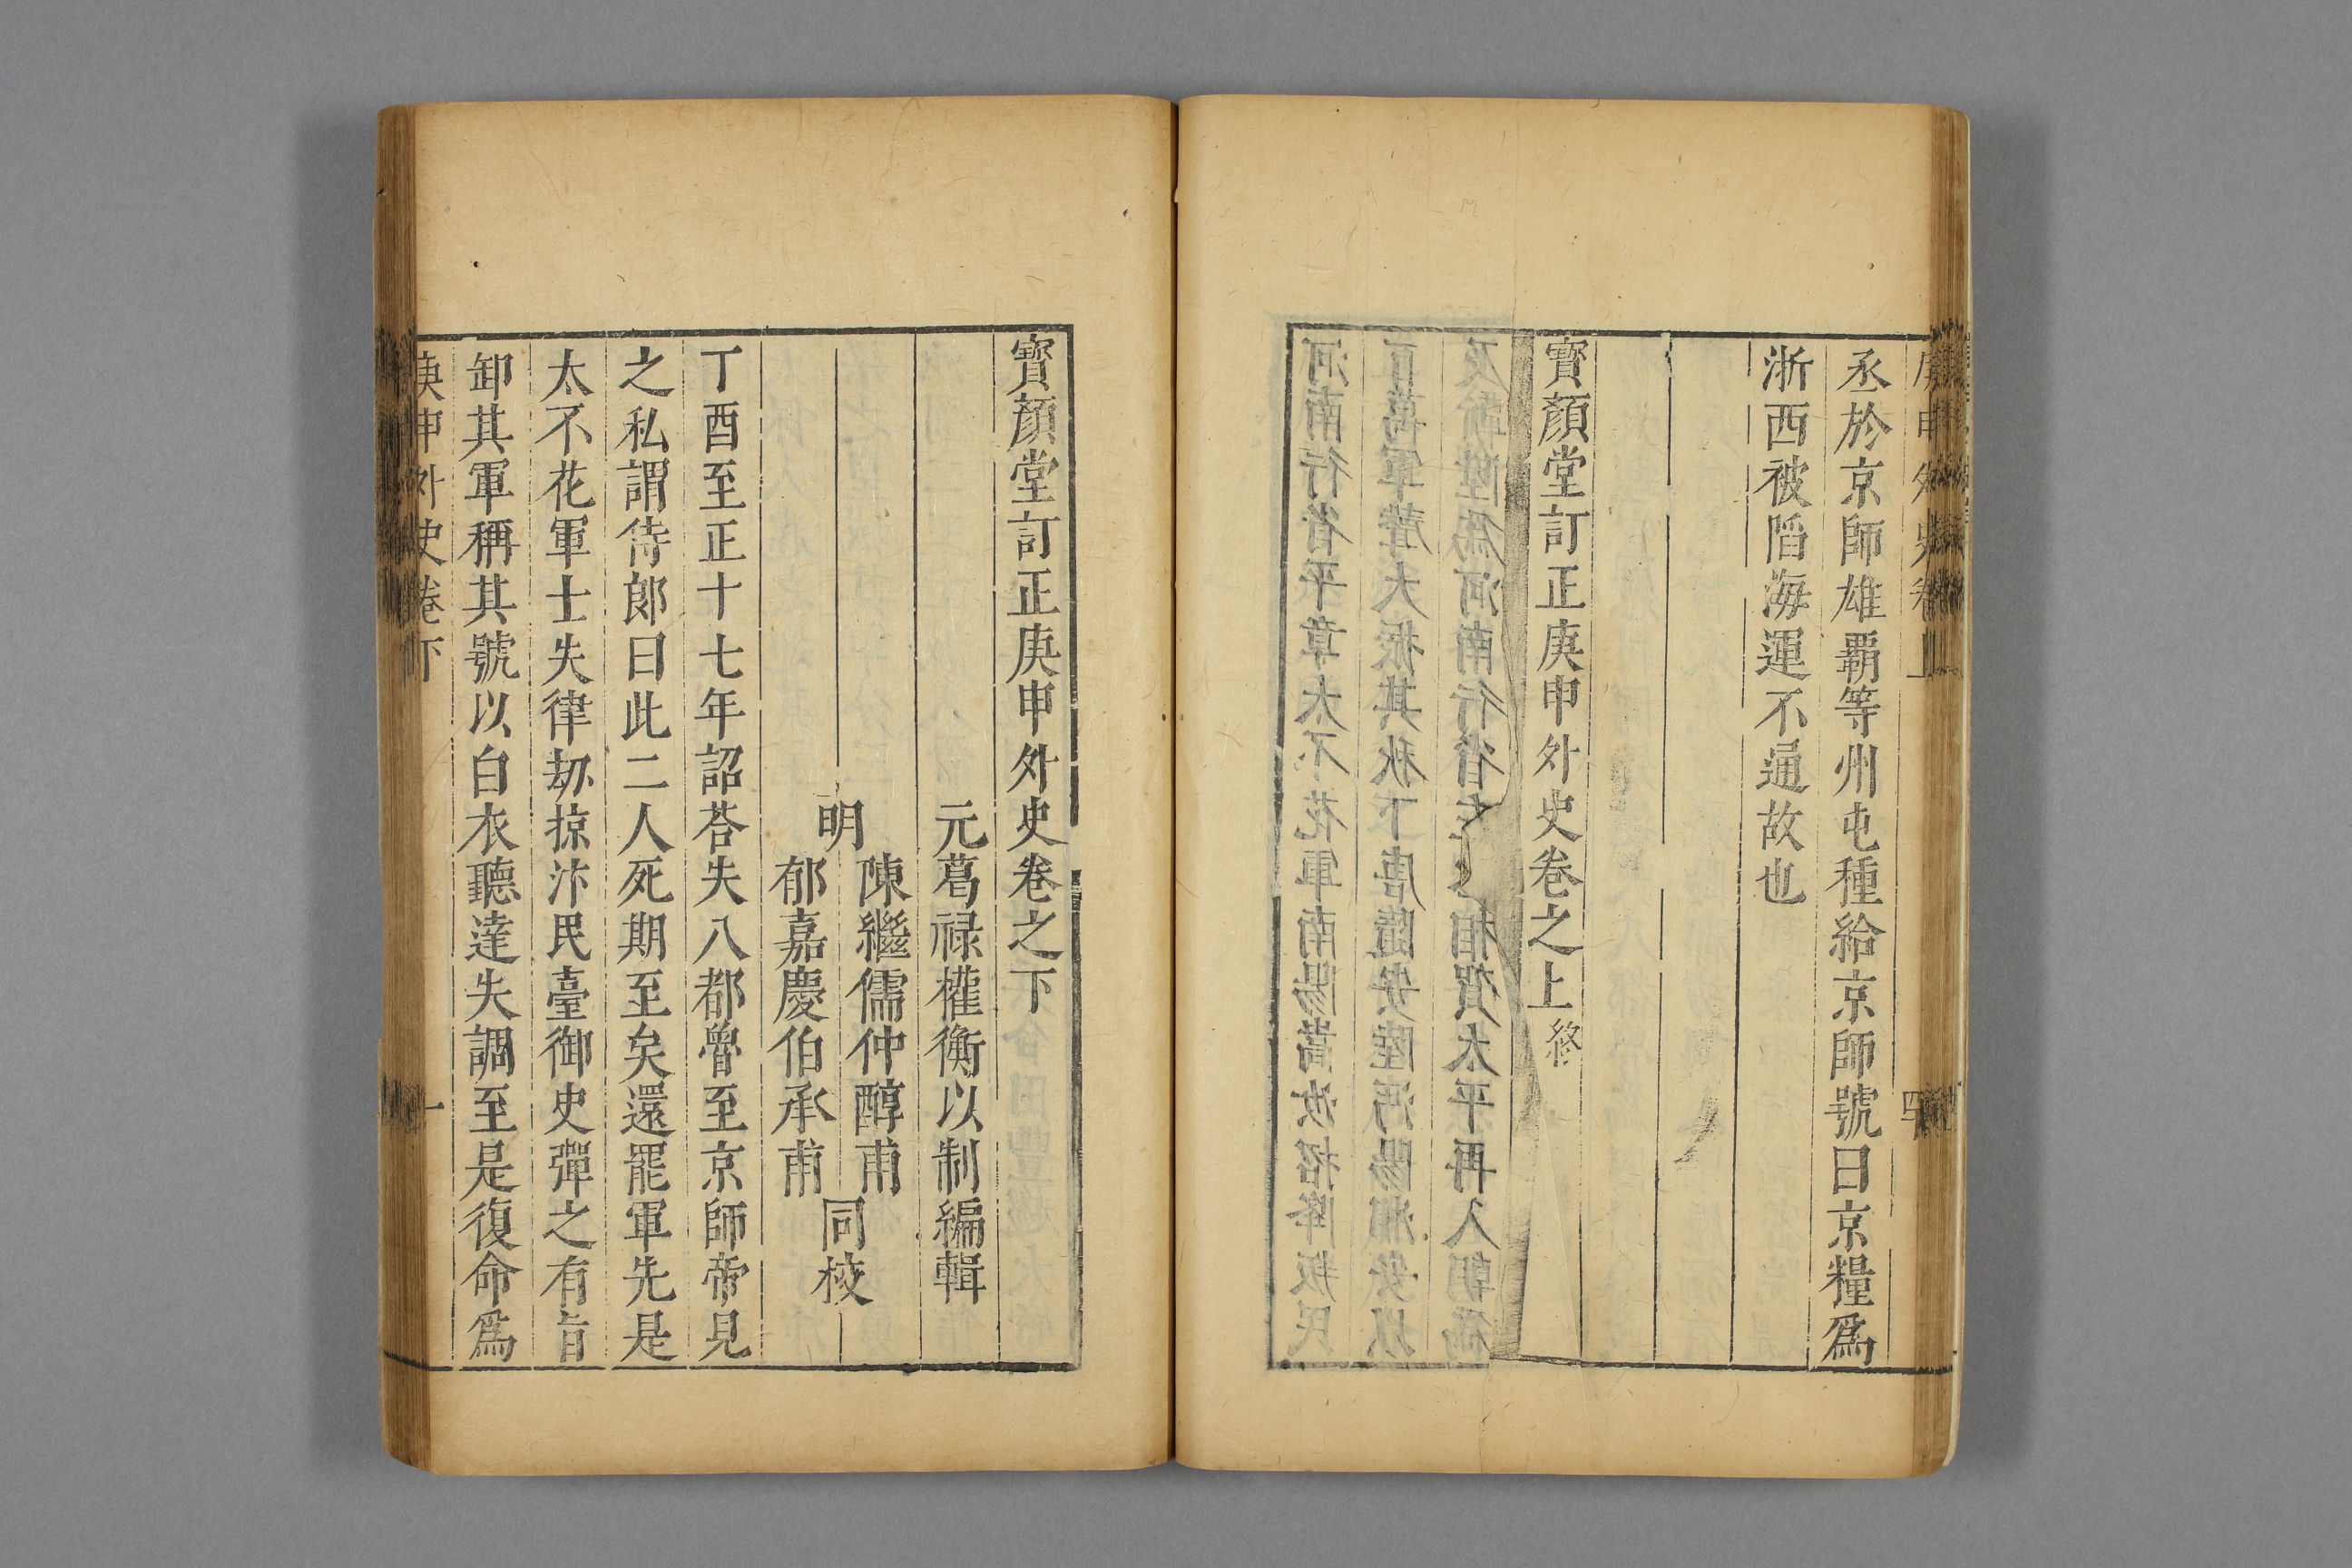 庚申外史卷上
丞於京師雄霸等州屯種給京師號曰京糧爲
浙西被陷海運不通故也
寳顏堂訂正庚申外史卷之上終
及蘄陞爲河南行省左相賀太平再入朝爲
百萬軍聲大振其秋下唐隨安陸沔陽浦安以
河南行省平章太不花軍南陽嵩汝招降叛民
寳顏堂訂正庚申外史卷之下
元葛祿權衡以制編輯
明
陳繼儒仲醇甫
郁嘉慶伯承甫
同校
丁酉至正十七年詔荅失八都魯至京師帝見
之私謂侍郎曰此二人死期至矣還罷軍先是
太不花軍士失律刼掠汴民臺御史彈之有旨
卸其軍稱其號以白衣聽達失調至是復命爲
庚申外史卷下
一